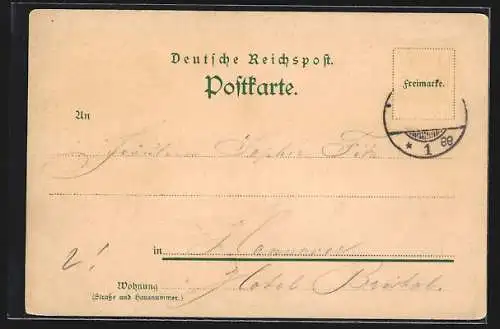 Deutsche Reichspost.
Postkarte.
Freimarke.
An
Fräulein Sophie
* 1
in Hannover
Wohnung Hotel Bristol.
(Straße und Hausnummer.)